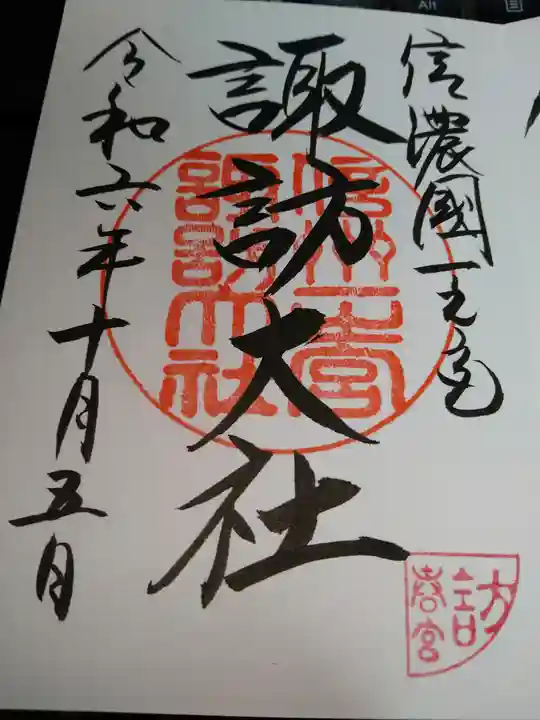 信濃國一之宮
諏訪大社
令和六年十月五日
信州一之宮
諏訪大社
訪
春宮
Alt